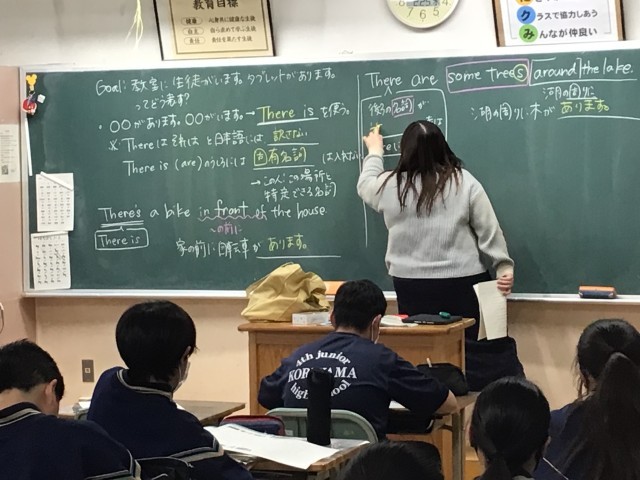 教育目標
心身共に健康な生徒
自ら求めて学ぶ生徒
責任を果たす生徒
クラスで協力しあう
みんなが仲良い
Goal: 教室に生徒がいます。タブレットがあります。
ってどう言う?
・〇〇があります。〇〇がいます。→ There is を使う。
※ There はそれは と日本語には 訳さない
There is (are) のうしろには 固有名詞 は入れない
→ この人! この場所と
特定できる名詞
There's a bike in front of the house.
There is
〜の前に
家の前に自転車が あります。
There are some trees around the lake.
湖の周りに
後ろの名詞が
湖の周りに木が あります。
4th junior
KORIYAMA
high school